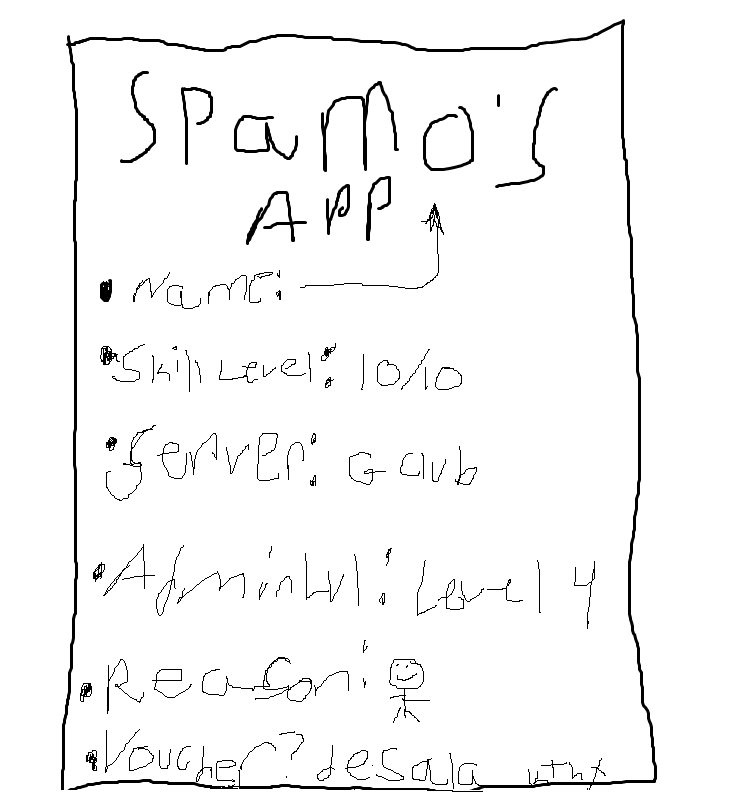 SPamo's
APP
Name:
Skill Level: 10/10
Server:
AdminLvl: Level 4
Reason:
Voucher?